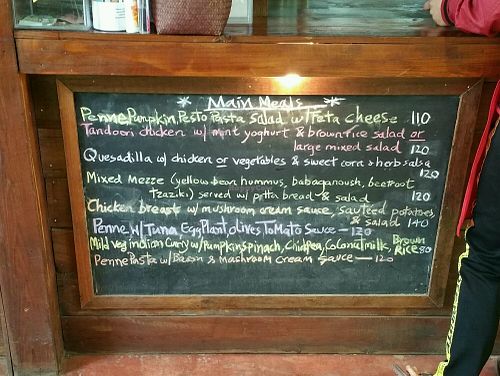 * Main Meals *
Penne, Pumpkin, Pesto Pasta Salad w/ Feta cheese 110
Tandoori chicken w/ mint yoghurt & brown rice salad or
large mixed salad 120
Quesadilla w/ chicken or vegetables & sweet corn & herb salsa
120
Mixed Mezze (yellow bean hummus, babaganoush, beetroot
tzaziki) served w/ pitta bread & salad 120
Chicken breast w/ mushroom cream sauce, sauteed potatoes
& salad 140
Penne w/ Tuna, Egg Plant, olives, Tomato Sauce - 120
Mild veg indian Curry w/ Pumpkin, Spinach, Chickpea, Coconut milk, Brown
Rice 80
Penne Pasta w/ Bacon & Mashroom Cream Sauce - 120